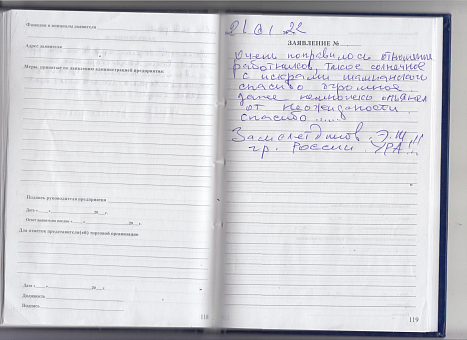 Фамилия и инициалы заявителя
Адрес заявителя
Меры, принятые по заявлению администрацией предприятия:
Подпись руководителя предприятия
Дата « » 20 г.
Ответ заявителю послан « » 20 г.
Для отметки представителя(ей) торговой организации
Дата « » 20 г.
Должность
Подпись
118
21.01.22
ЗАЯВЛЕНИЕ №
Очень понравилось отношение
работников, такое солнечное
с искрами шампанского
спасибо огромное
даже немножко опьянел
от неожиданности
спасибо.....
Э.Ш !!!
гр. России УРА!!!
119